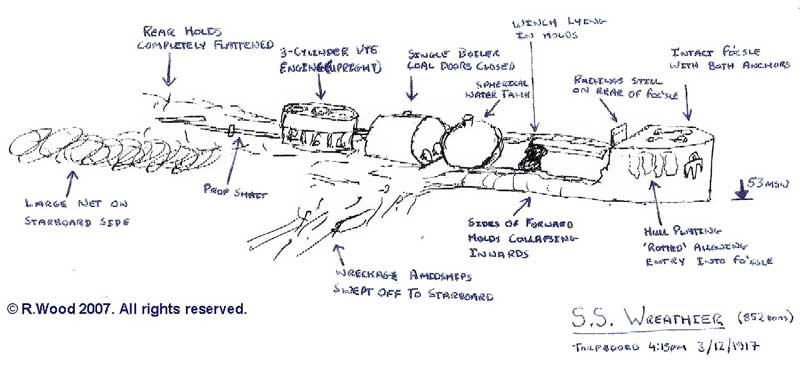 REAR HOLDS
COMPLETELY FLATTENED
3-CYLINDER VTE
ENGINE (UPRIGHT)
SINGLE BOILER
COAL DOORS CLOSED
SPHERICAL
WATER TANK
WINCH LYING
IN HOLDS
RAILINGS STILL
ON REAR OF FO'SLE
INTACT FO'SLE
WITH BOTH ANCHORS
LARGE NET ON
STARBOARD SIDE
PROP SHAFT
WRECKAGE AMIDSHIPS
SWEPT OFF TO STARBOARD
SIDES OF FORWARD
HOLDS COLLAPSING
INWARDS
HULL PLATING
'ROTTED' ALLOWING
ENTRY INTO FO'SLE
53 MSW
© R.Wood 2007. All rights reserved.
S.S. WREATHIER (852 TONS)
TORPEDOED 4:15PM 3/12/1917